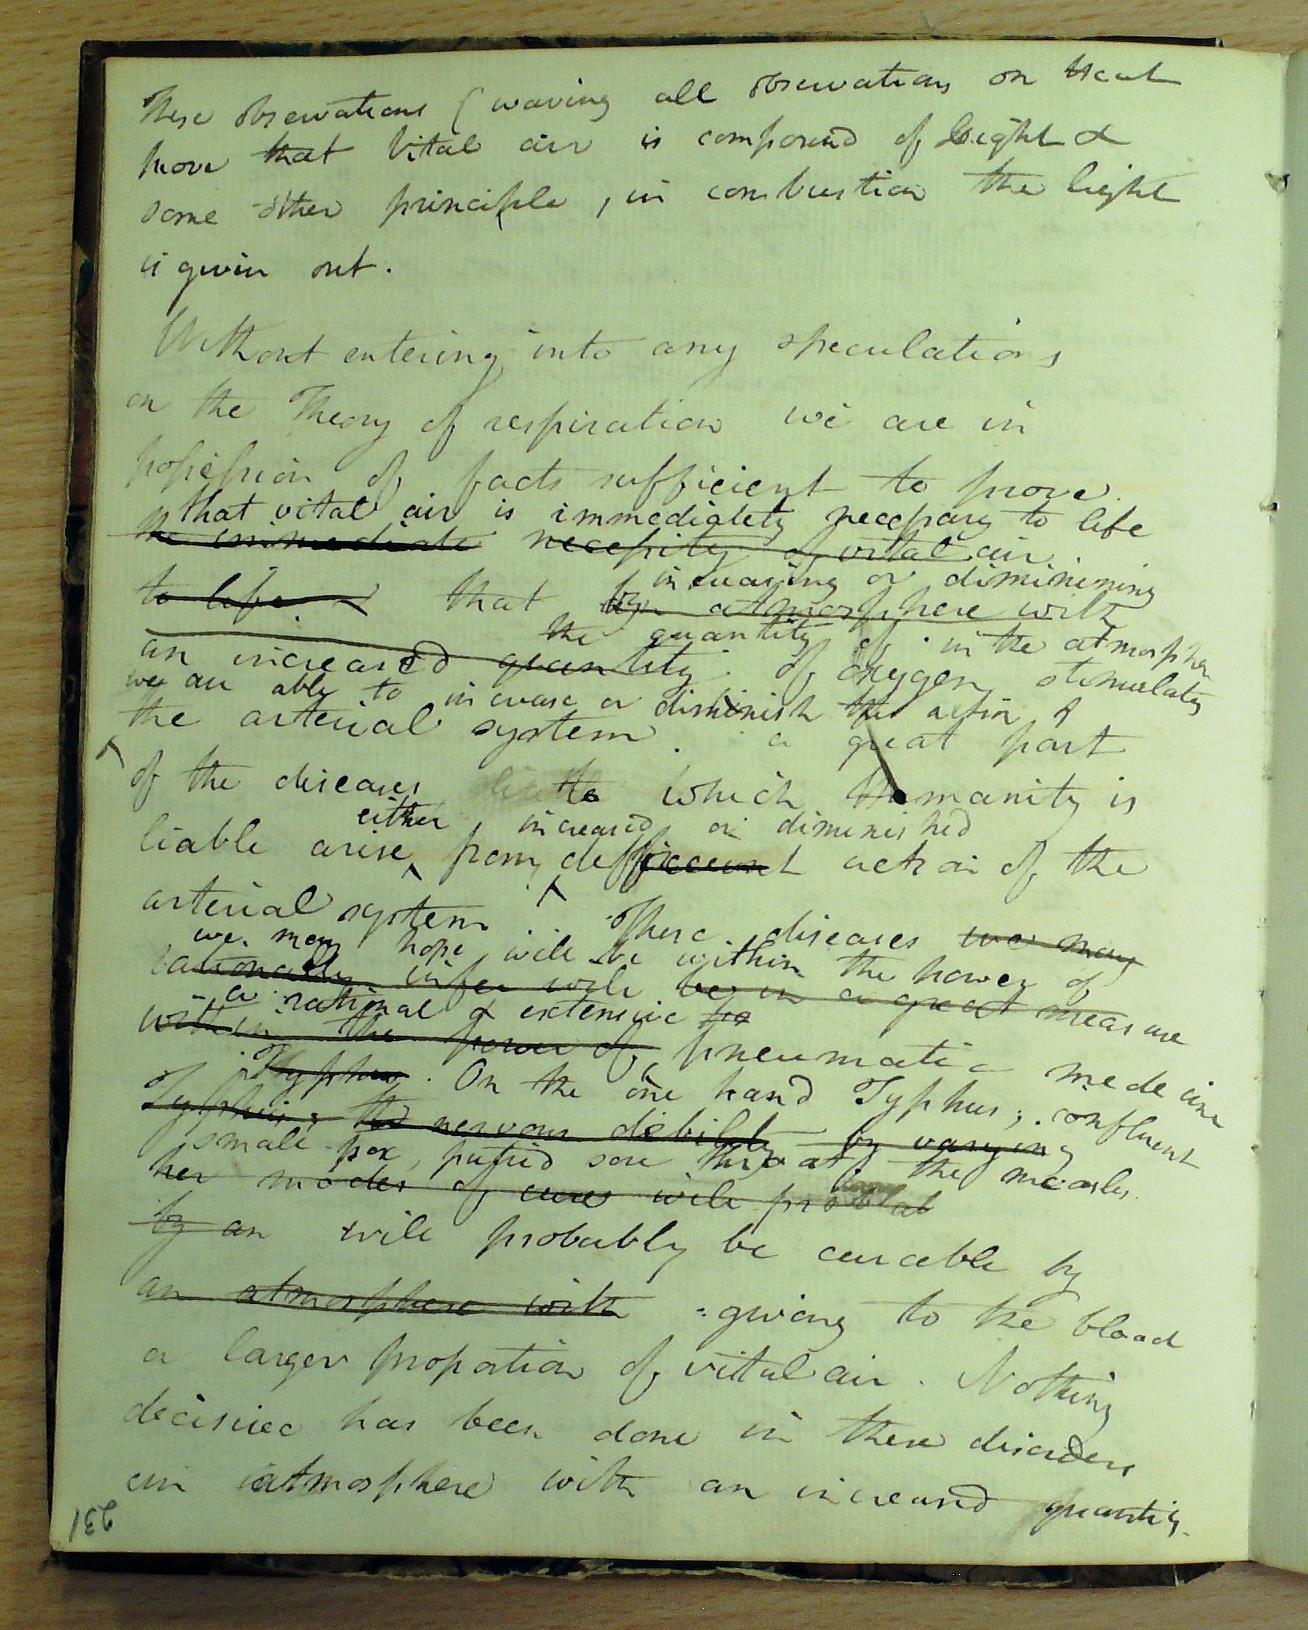 These observations (waving all observations on Heat
prove that Vital air is compound of Light &
some other principle, in combustion the light
is given out.
Without entering into any speculations
on the Theory of respiration we are in
possession of facts sufficient to prove
that vital air is immediately necessary to life
the immediate necessity of vital air
increasing or diminining
to life & that by atmosphere with
the quantity of in the atmosphere
an increased quantity of oxygen stimulates
we are able to increase or diminish the action of
the arterial system. a great part
of the diseases to which humanity is
either increased or diminished
liable arise from deficient action of the
arterial system. These diseases we may
we may hope will be within the power of
rationally infer will be in a great measure
a rational & extensive
within the power of pneumatic medecine
Typhus. On the one hand Typhus, confluent
Typhus, the nervous debility by varying
small pox, putrid sore throat, the measles.
her modes of cures will probabl
by an will probably be cureable by
an atmosphere with giving to the blood
a larger proportion of vital air. Nothing
decisive has been done in these disorders
in atmosphere with an increased quantity
231